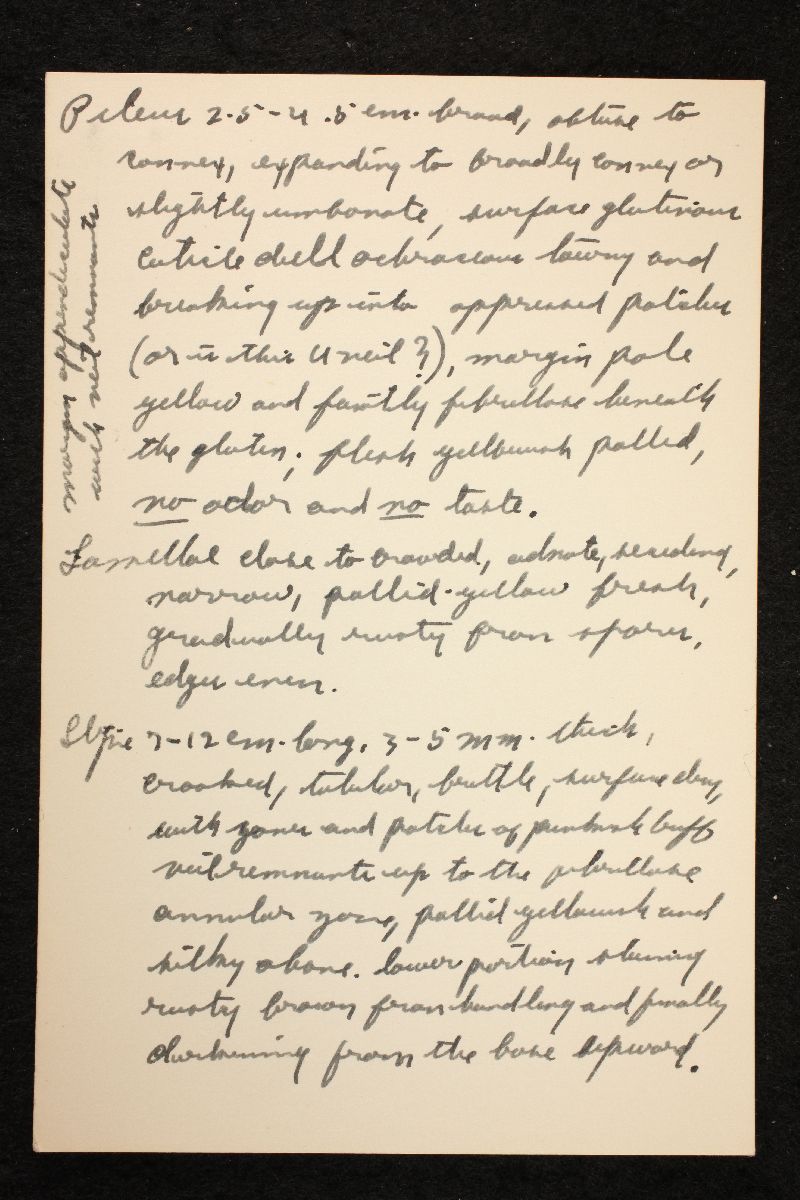 Pileus 2.5-4.5 cm. broad, obtuse to
convex, expanding to broadly convex or
slightly umbonate, surface glutinous
cuticle dull ochraceous tawny and
breaking up into appressed patches
(or is this u veil?), margin pale
yellow and faintly fibrillose beneath
the gluten; flesh yellowish pallid,
no odor and no taste.
margin appendiculate
with veil remnants
Lamellae close to crowded, adnate, seceding,
narrow, pallid-yellow fresh,
gradually rusty from spores,
edges even.
Stipe 7-12 cm. long, 3-5 mm. thick,
crooked, tubular, brittle, surface dry,
with zones and patches of pinkish buff
veil remnants up to the fibrillose
annular zone, pallid yellowish and
silky above. lower portion staining
rusty brown from handling and finally
darkening from the base upward.